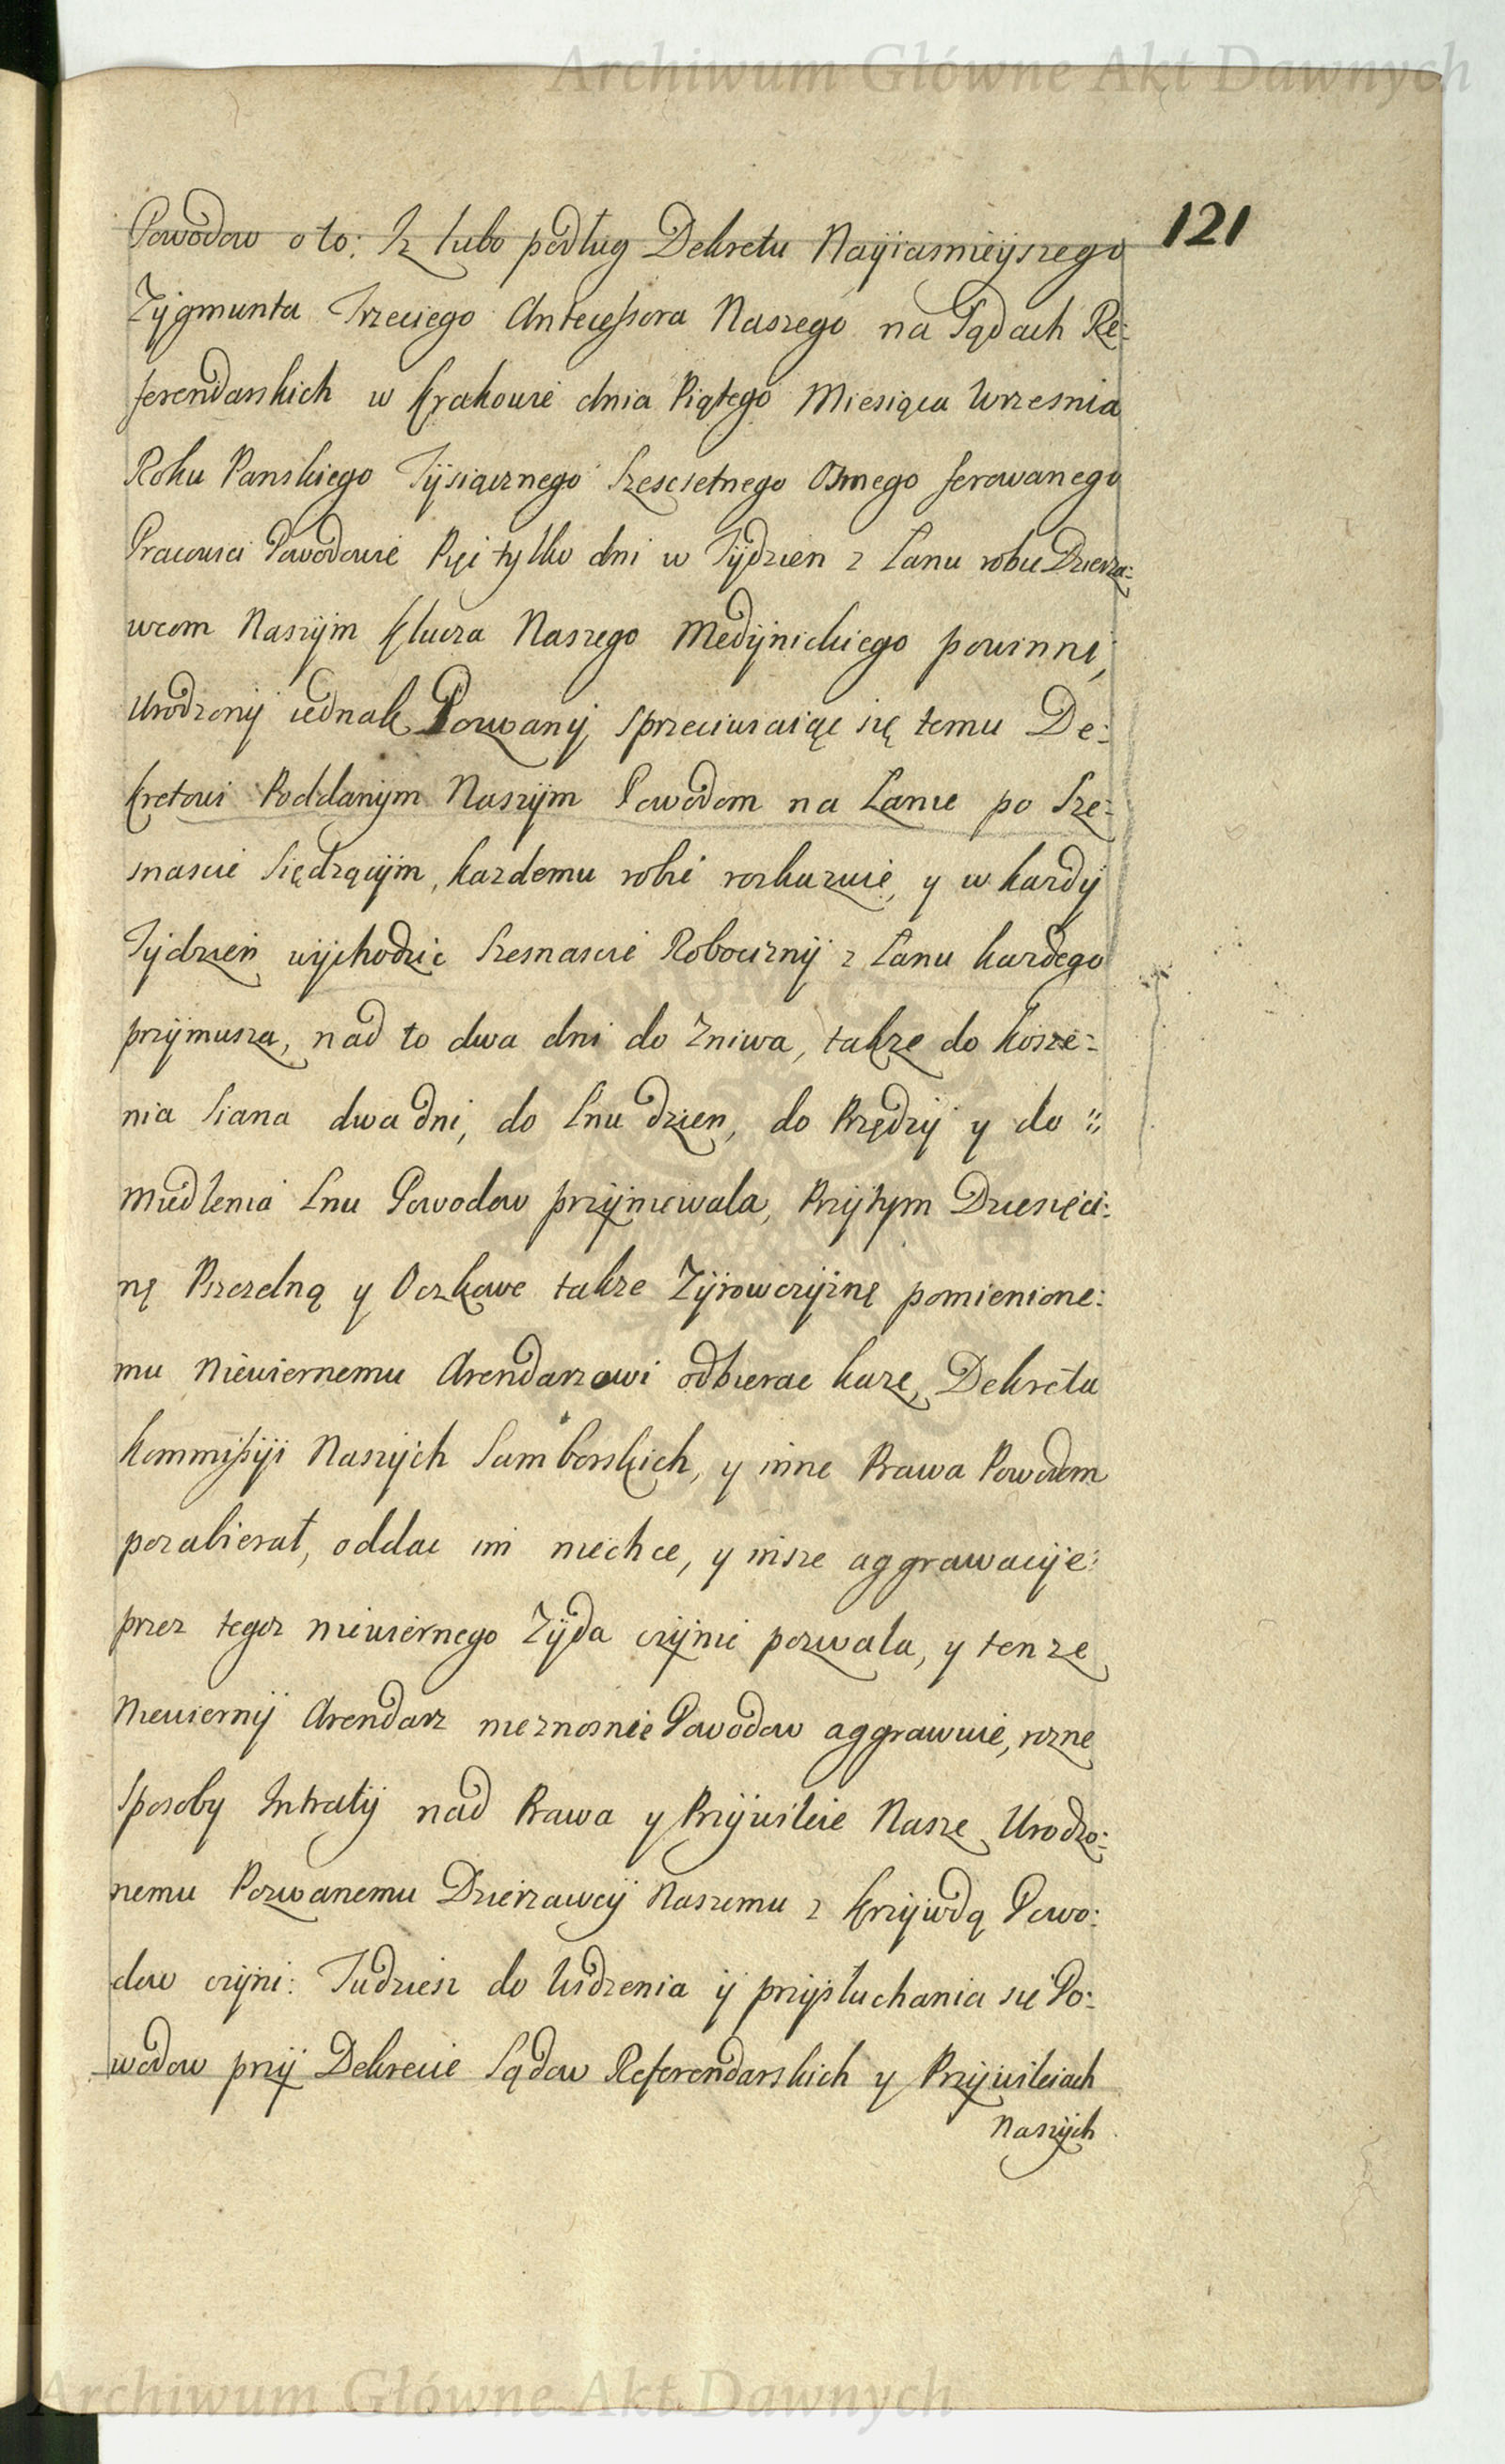 Archiwum Główne Akt Dawnych
121
Powodow o to: Iz lubo podług Dekretu Nayiasnieyszego
Zygmunta Trzeciego Antecessora Naszego na Sądach Re:
ferendarskich w Krakowie dnia Piątego Miesiąca Wrzesnia
Roku Panskiego Tysiącznego Szescsetnego Osmego ferowanego
Pracowici Powodowie Pęi tylko dni w Tydzien z Łanu robic Dzierza:
wcom Naszym Klucza Naszego Medynickiego powinni,
Urodzony iednak Pozwany, sprzeciwiaiąc się temu De:
kretowi Poddanym Naszym Powodom na Łanie po Sze:
snascie Siędzącym, kazdemu robic roskazuie, y w kazdy
Tydzien wychodzic Szesnascie Roboczny z Łanu kazdego
przymusza, nad to dwa dni do Zniwa, takze do kosze:
nia Siana dwa dni, do Lnu dzien, do Przędzy y do
miedlenia Lnu Powodow przyniewala, Przytym Dziesięci:
nę Pszczelną y Oczkowe takze Zyrowczyznę pomienione:
mu Niewiernemu Arendarzowi odbierac kaze, Dekreta
Kommissyi Naszych Samborskich, y inne Prawa Powodom
pozabierał, oddac im niechce, y insze aggrawacye:
przez tegoz niewiernego Zyda czynic pozwala, y tenze
Niewierny Arendarz nieznosnie Powodow aggrawuie, rozne
sposoby Intraty nad Prawa y Przywileie Nasze Urodzo:
nemu Pozwanemu Dzierzawcy Naszemu z Krzywdą Powo:
dow czyni: Tudziesz do Widzenia y przysłuchania się Po:
wodow przy Dekrecie Sądow Referendarskich y Przywileiach
Naszych
Archiwum Główne Akt Dawnych